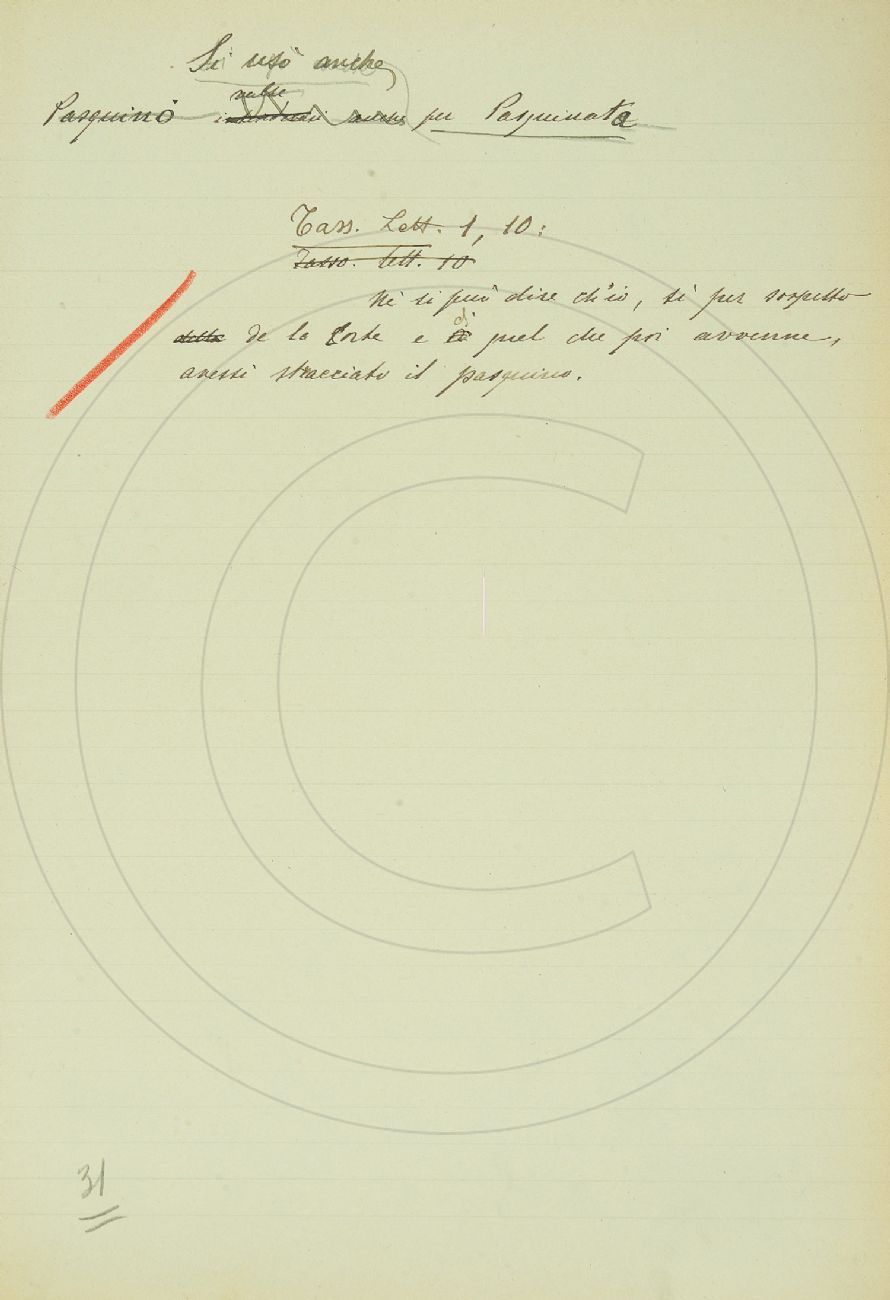 Si usò anche
valse
Pasquino anche per Pasquinata
Tass. Lett. 1, 10:
Tasso. Lett. 10
Nè si può dire ch'io, sì per sospetto
della de la Corte e di quel che poi avvenne,
avessi stracciato il pasquino.
31